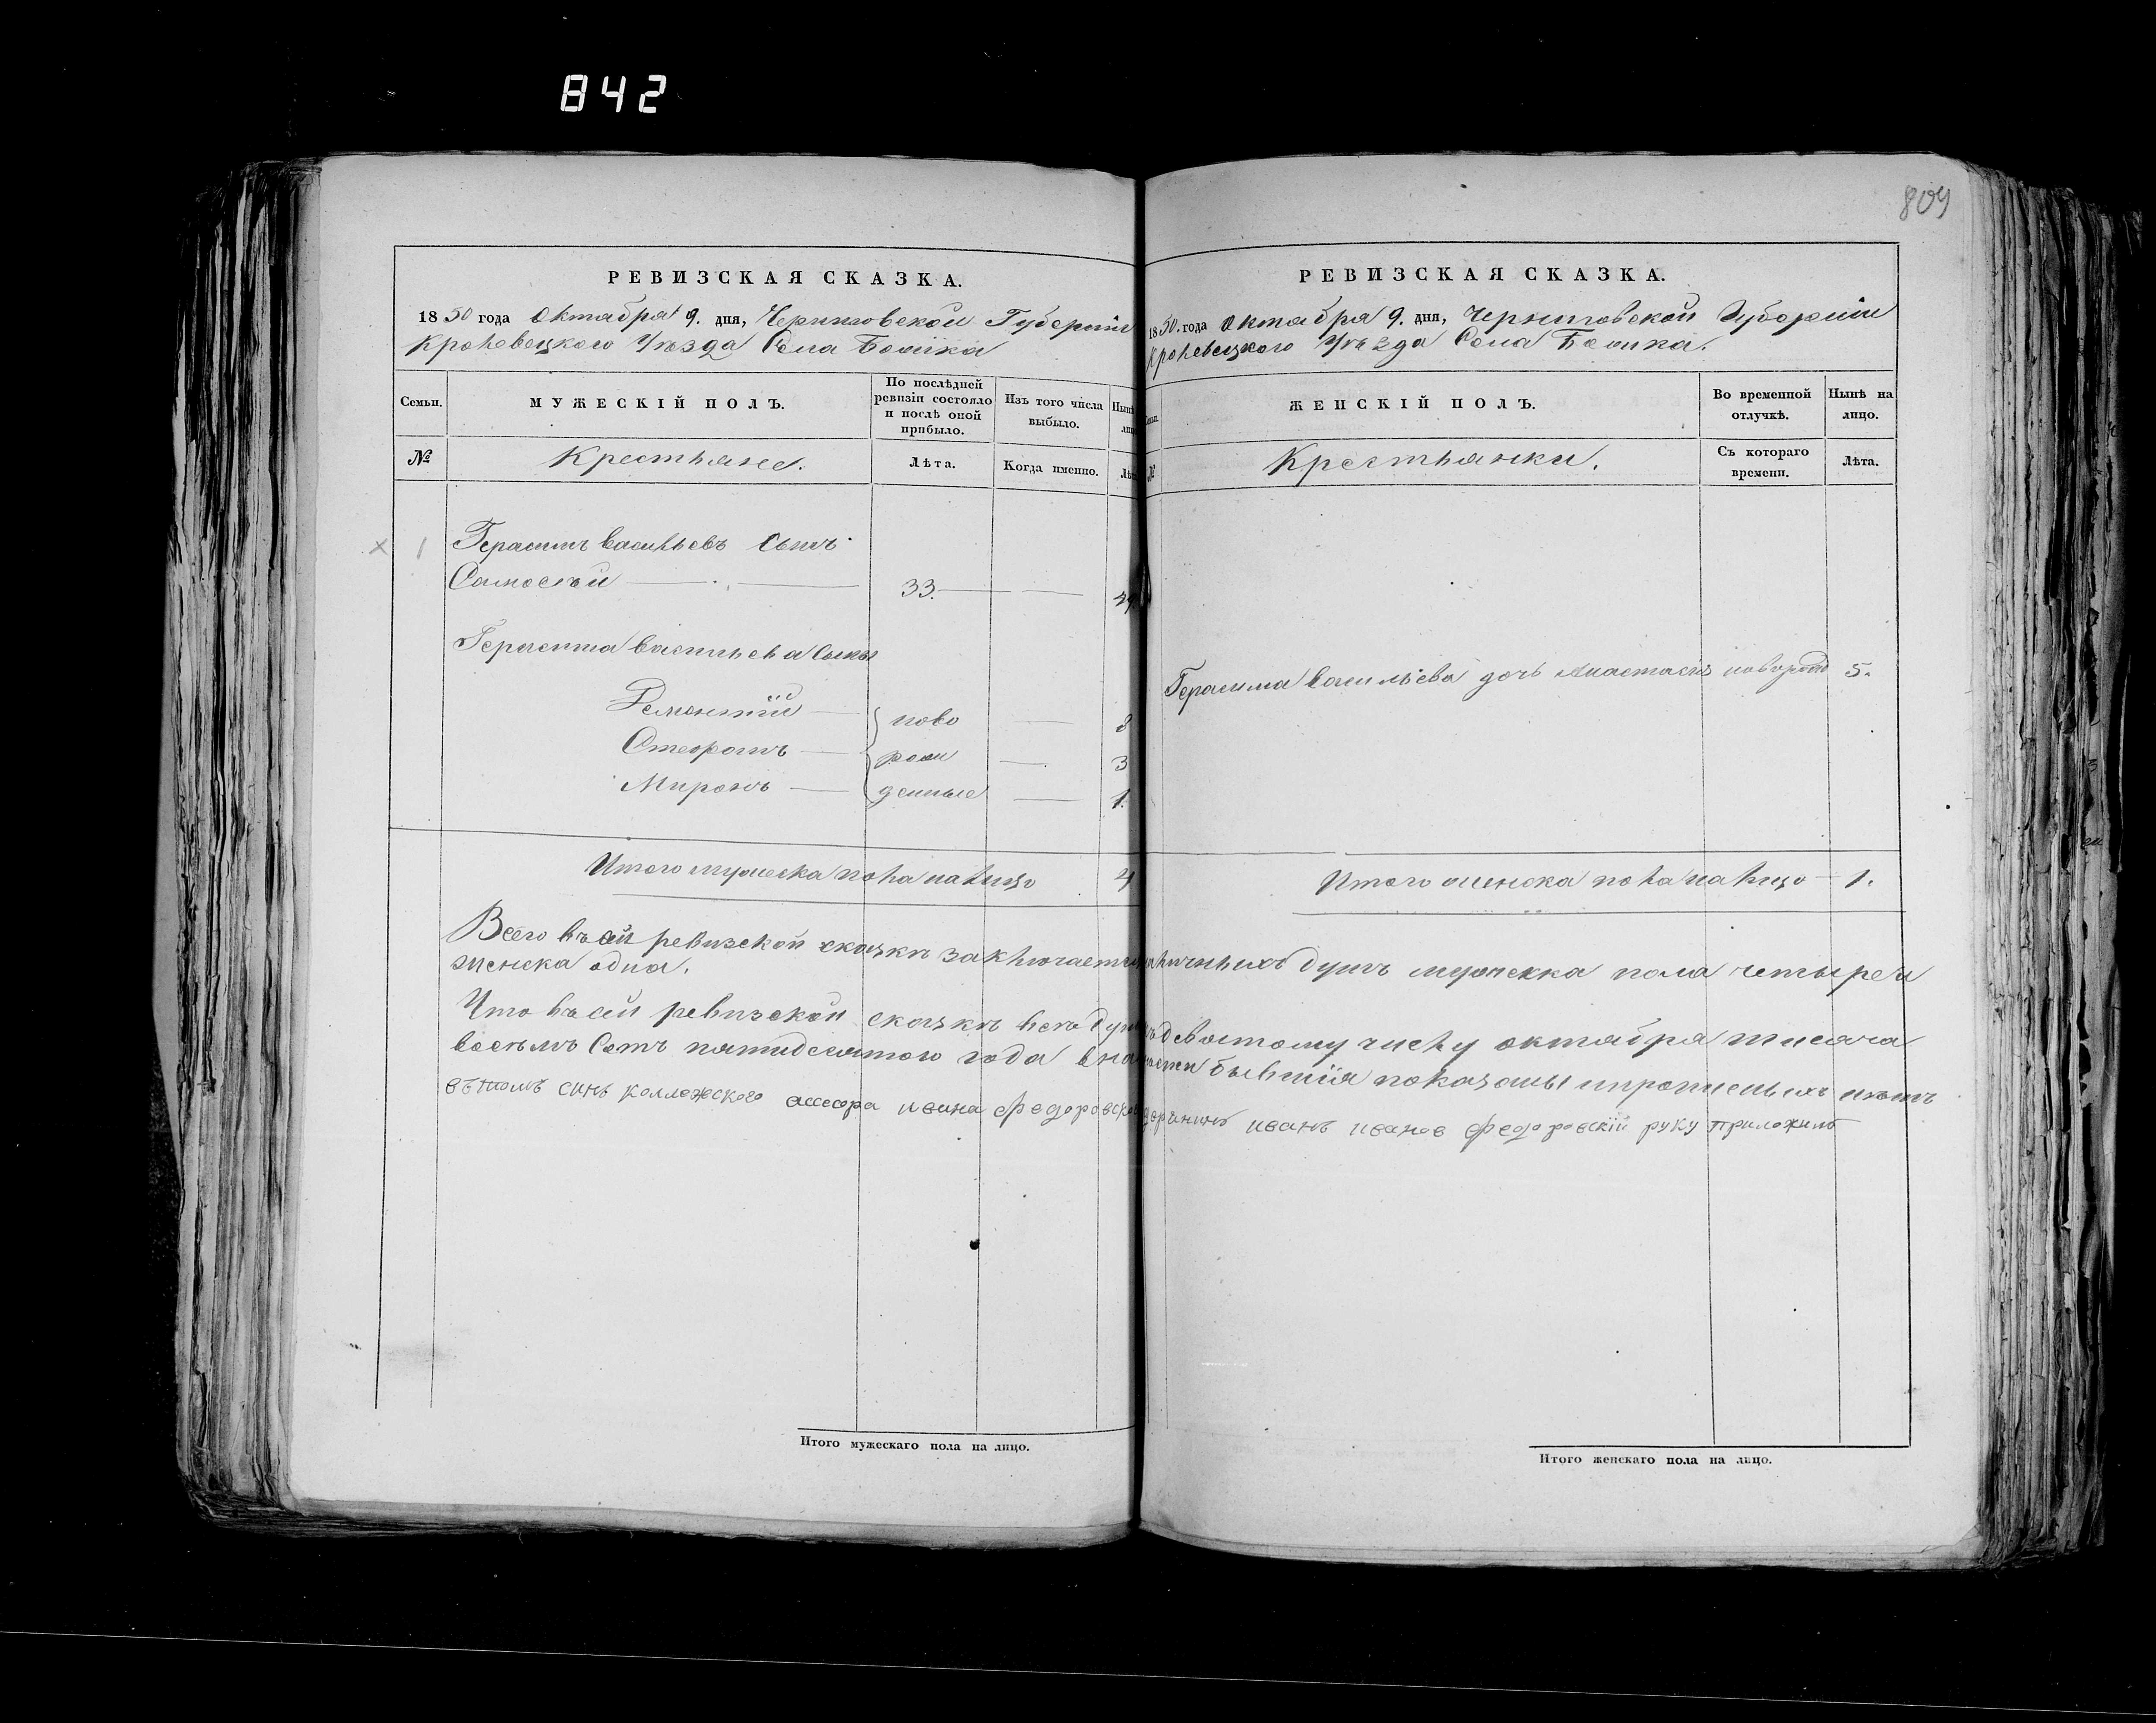 842
809
РЕВИЗСКАЯ СКАЗКА.
1850 года Октября 9. дня, Черниговской Губернии
Кролевецкого Уѣзда Села
Семьи.
МУЖЕСКІЙ ПОЛЪ.
По послѣдней ревизіи состояло и послѣ оной прибыло.
Изъ того числа выбыло.
№
Крестьяне.
Лѣта.
Когда именно.
1
Герасимъ Васильевъ Сынъ
33.
Герасима Васильева Сыны
ново
8
Стефанъ
рож
3
Миронъ
денные
1.
Итого мужеска пола на лицо 4
РЕВИЗСКАЯ СКАЗКА.
1850. года Октября 9. дня, Черниговской Губерніи
Кролевецкого Уѣзда Села
ЖЕНСКІЙ ПОЛЪ.
Во временной отлучкѣ.
Нынѣ на лицо.
№
Крестьянки.
Съ котораго времени.
Лѣта.
Герасима Васильева дочь 5.
Итого женска пола на лицо 1.
Всего въ сей ревизской сказкѣ заключается наличныхъ душъ мужеска пола четыре и
женска одна.
Что въ сей ревизской сказкѣ всѣ души къ девятому числу октября тисяча
восемъ Сотъ пятидесятого года бывшія показаны и прописныхъ нѣтъ
вътомъ синъ коллежского ассесора ивана федоровского дворанинъ иванъ иванов федоровскій руку приложилъ
Итого мужескаго пола на лицо.
Итого женскаго пола на лицо.